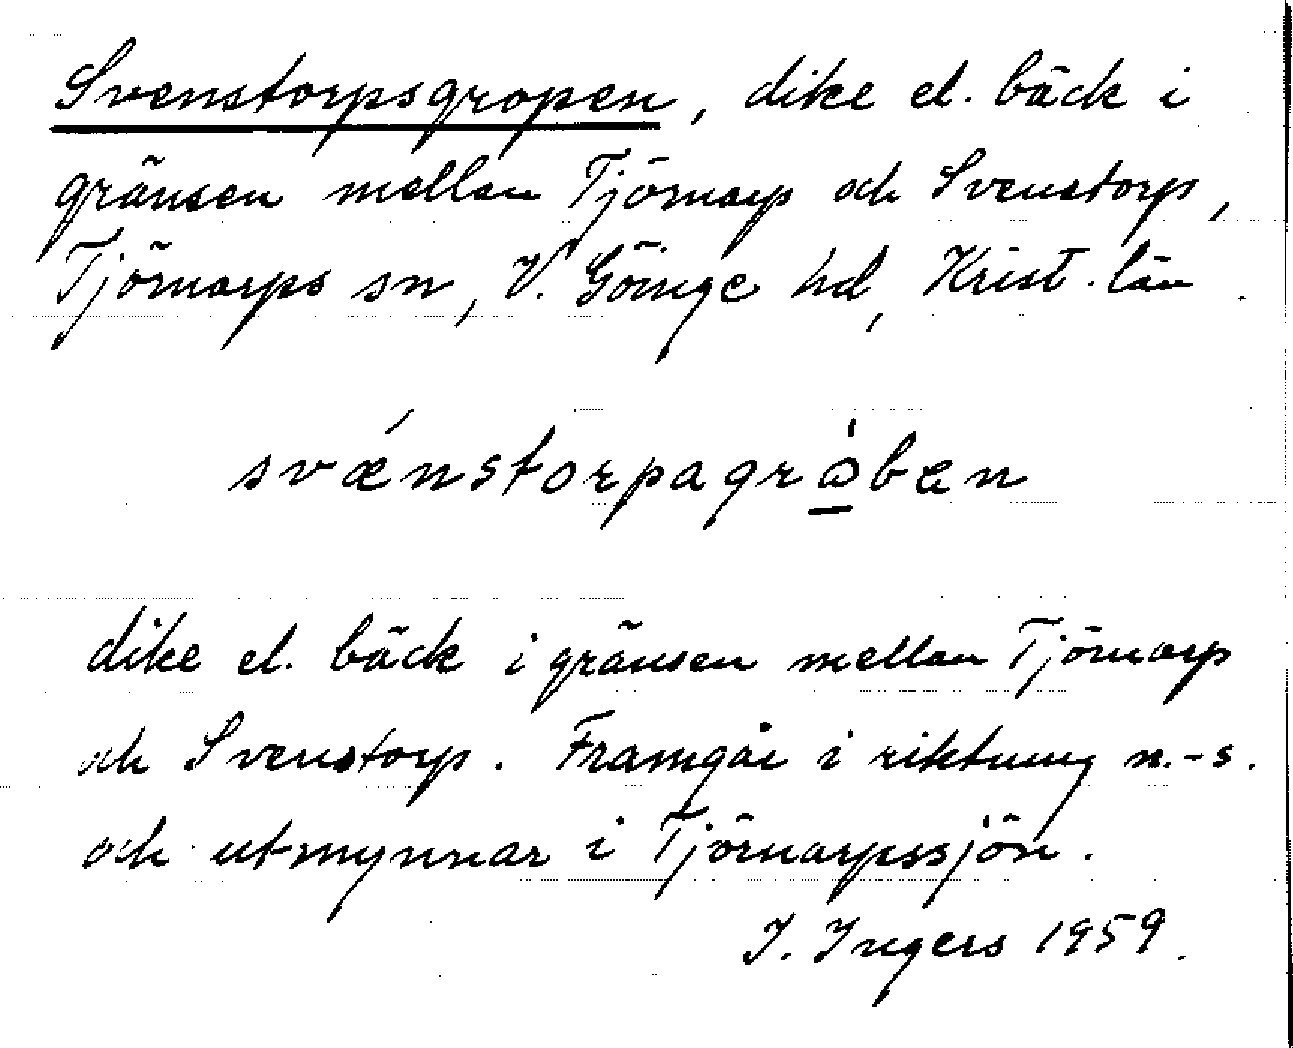 Svenstorpsgropen, dike el. bäck i
gränsen mellan Tjörnarp och Svenstorp,
Tjörnarps sn, V. Göinge hd, Krist. län.
svǽnstorpagrå̀ben
dike el. bäck i gränsen mellan Tjörnarp
och Svenstorp. Framgår i riktning n.-s.
och utmynnar i Tjörnarpssjön.
I. Ingers 1959.